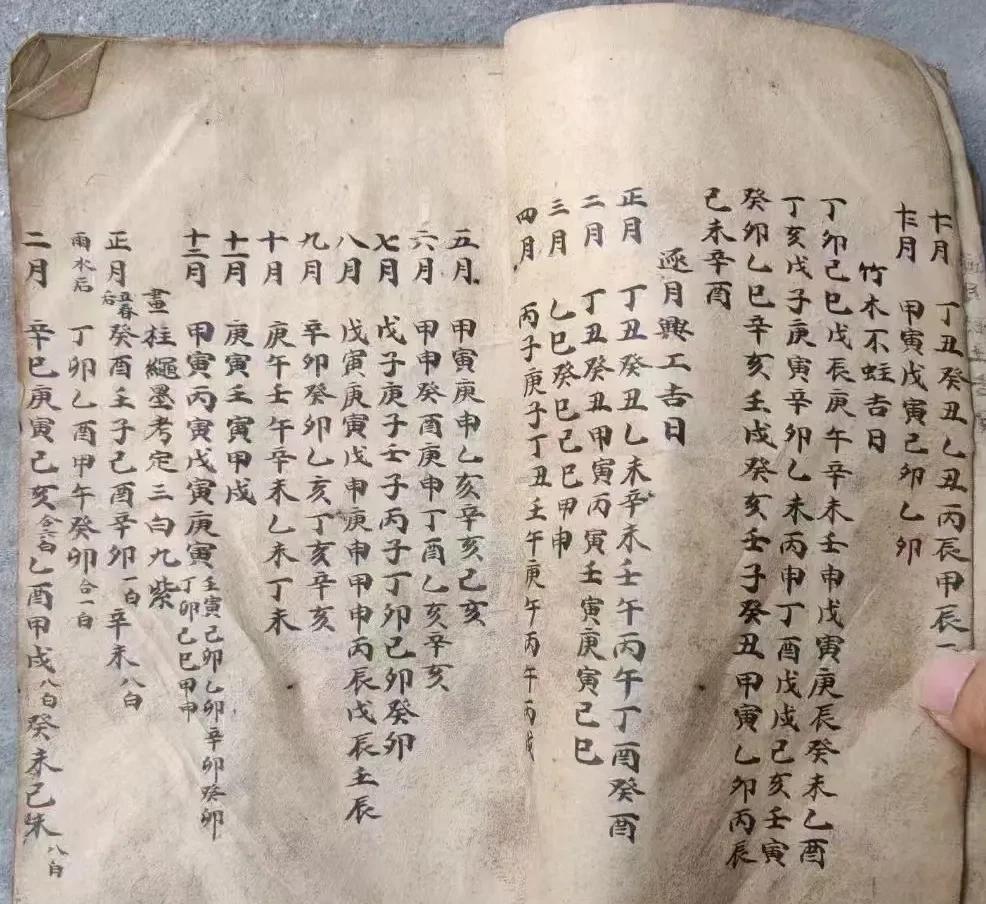 十一月 丁丑癸丑乙丑丙辰甲辰
十二月 甲寅戊寅己卯乙卯
竹木不蛀吉日
丁卯己巳戊辰庚午辛未壬申戊寅庚辰癸未乙酉
丁亥戊子庚寅辛卯乙未丙申丁酉戊戌己亥壬寅
癸卯乙巳辛亥壬戌癸亥壬子癸丑甲寅乙卯丙辰
己未辛酉
逐月興工吉日
正月 丁丑癸丑乙未辛未壬午丙午丁酉癸酉
二月 丁丑癸丑甲寅丙寅壬寅庚寅己巳
三月 乙巳癸巳己巳甲申
四月 丙子庚子丁丑壬午庚午丙午丙戌
五月 甲寅庚申乙亥辛亥己亥
六月 甲申癸酉庚申丁酉乙亥辛亥
七月 戊子庚子壬子丙子丁卯己卯癸卯
八月 戊寅庚寅戊申庚申甲申丙辰戊辰壬辰
九月 辛卯癸卯乙亥丁亥辛亥
十月 庚午壬午辛未乙未丁未
十一月 庚寅壬寅甲戌
十二月 甲寅丙寅戊寅庚寅壬寅己卯乙卯辛卯癸卯丁卯己巳甲申
畫柱繩墨考定三白九紫
正月立春后癸酉壬子己酉辛卯一白辛未八白
雨水后 丁卯乙酉甲午癸卯合一白
二月 辛巳庚寅己亥合六白乙酉甲戌八白癸未己未八白